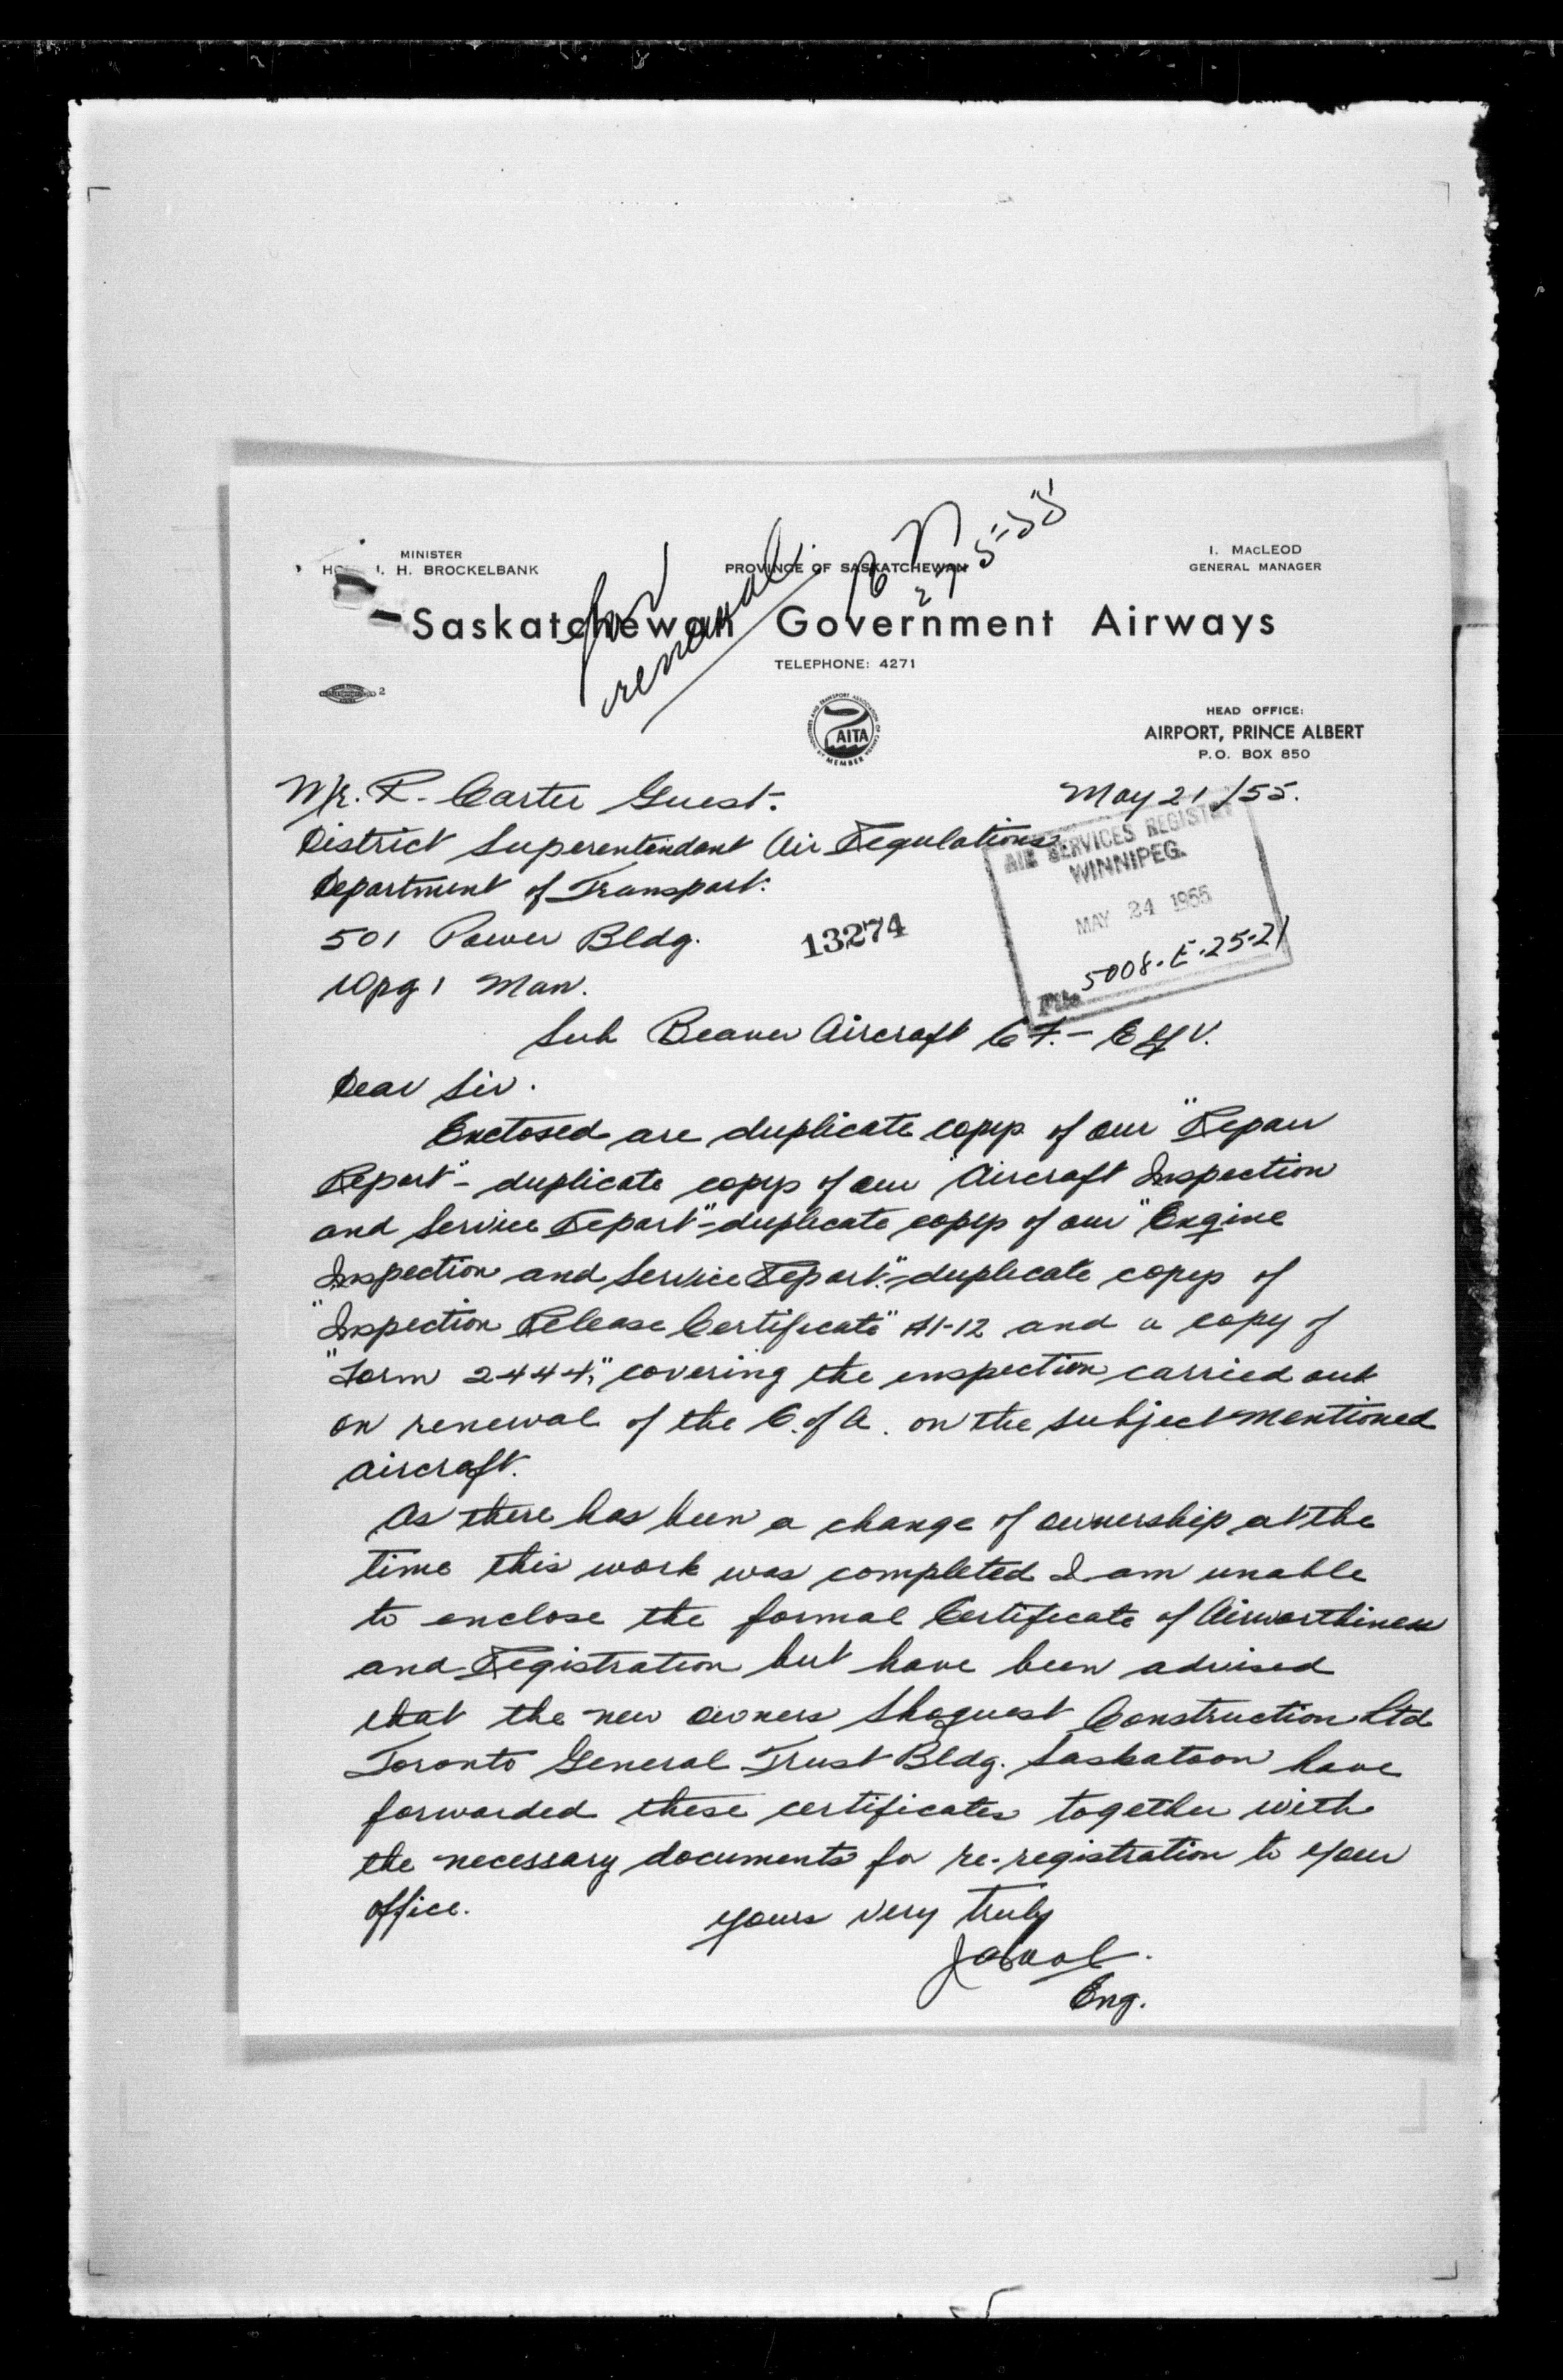 for
renewal
27-5-55
MINISTER
I. H. BROCKELBANK
PROVINCE OF SASKATCHEWAN
I. MACLEOD
GENERAL MANAGER
Saskatchewan Government Airways
TELEPHONE: 4271
2
AITA
MEMBER
HEAD OFFICE:
AIRPORT, PRINCE ALBERT
P.O. BOX 850
Mr. R. Carter Guest.
May 21/55.
District Superentendant Air Regulations
Department of Transport.
501 Power Bldg.
Wpg 1 Man.
13274
AIR SERVICES REGISTRY
WINNIPEG.
MAY 24 1955
File 5008-E-25-21
Sub Beaver Aircraft CF.-EYV.
Dear Sir.
Enclosed are duplicate copys of our "Repair
Report"- duplicate copys of our "Aircraft Inspection
and Service Report"-duplicate copys of our "Engine
Inspection and Service Report."-duplicate copys of
"Inspection Release Certificate" A1-12 and a copy of
"Form 2444," covering the inspection carried out
on renewal of the C. of A. on the subject mentioned
aircraft.
As there has been a change of ownership at the
time this work was completed I am unable
to enclose the formal Certificate of Airworthiness
and Registration but have been advised
that the new owners Shoquest Construction Ltd
Toronto General Trust Bldg. Saskatoon have
forwarded these certificates together with
the necessary documents for re-registration to your
office.
yours very truly
Eng.